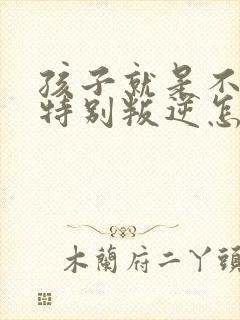 孩子就是不
特别叛逆怎
木蘭府二丫頭